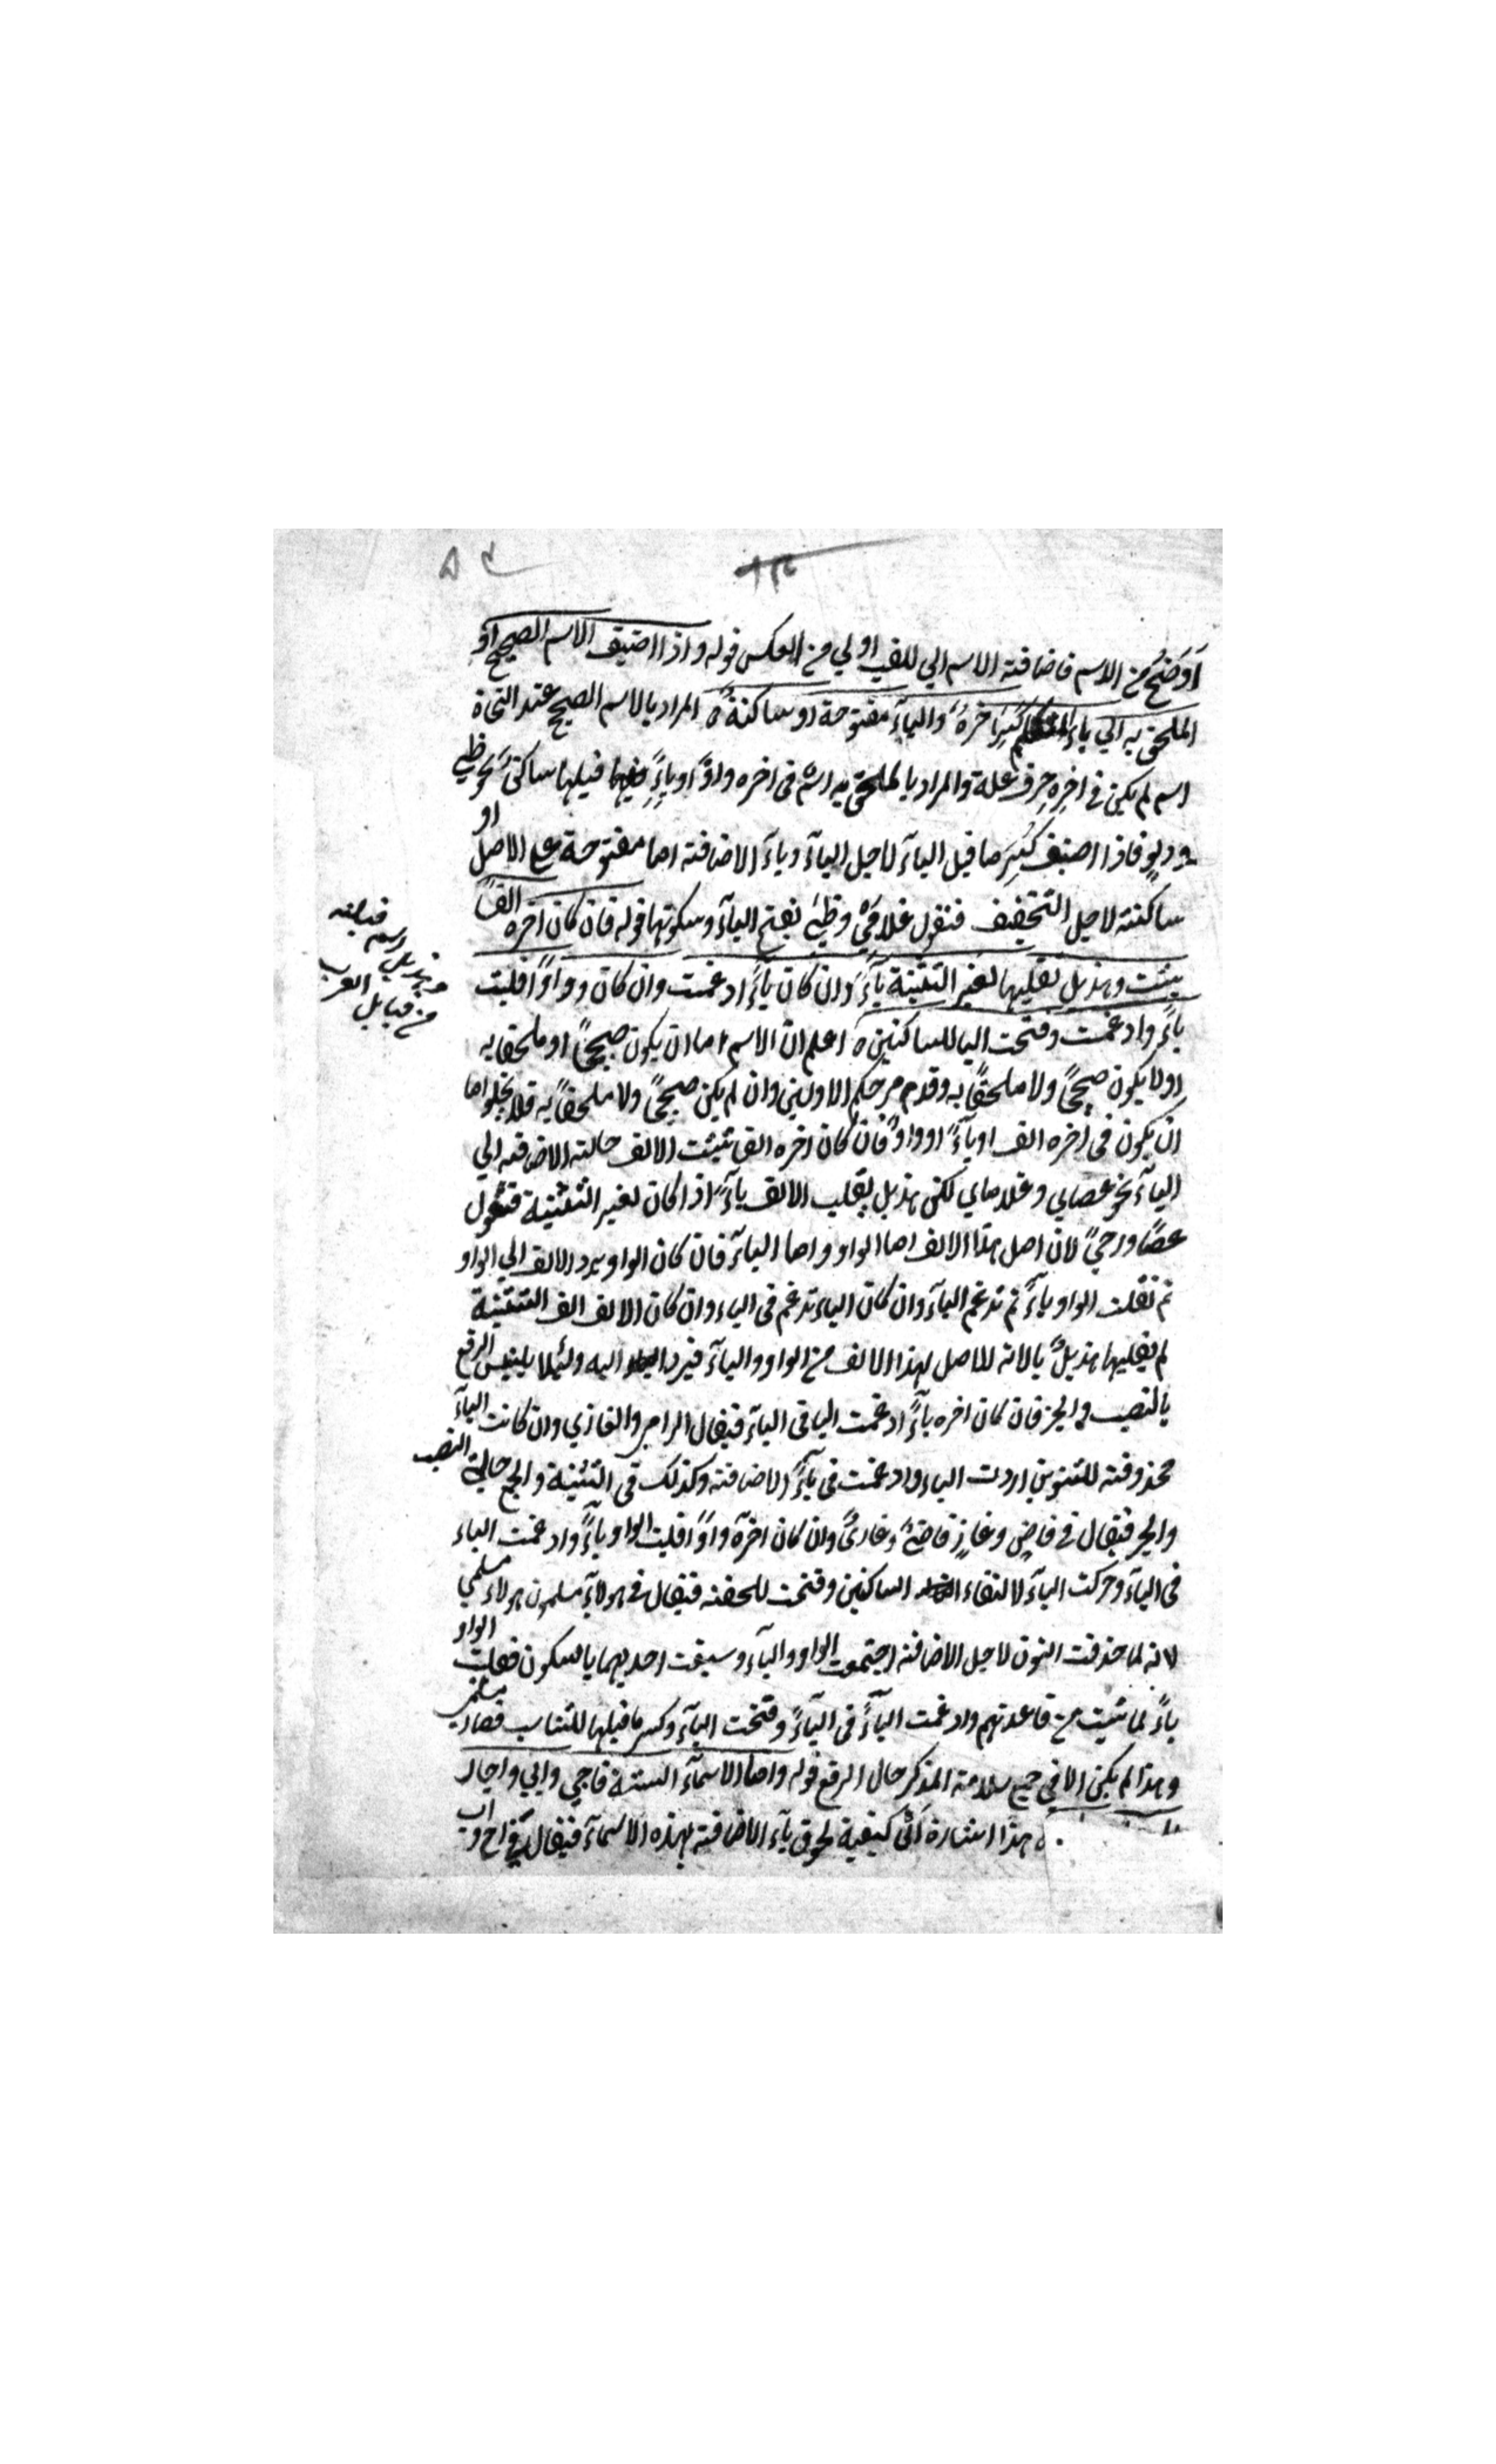 اَوضَحُ من الاسم فاضافته الاسم الي للقب اولي من العكس قوله واذا اضيف الاسم الصحيح او
الملحق به الي ياء المتكلم كُسِرَ اخرهُ والياءُ مفتوحة او ساكنةٌ المراد بالاسم الصحيح عند النحاة
اسم لم يكن في اخرِهِ حرف علة والمراد بالملحق به اسْم في اخره واوٌ او ياءٍ قبلها ساكن نحو ظبي
ودلوٍ فاذا اضيف كُسِرَ ما قبل الياء لاجل الياء وياء الاضافته اما مفتوحة علي الاصل او
ساكنته لاجل التخفيف فنقول غلامَيْ وظبيَ بفتح الياء وسكونها قوله فان كان اخره الفًا
يثبت وهذيل تقلبها لغير التثنية ياءً وان كان ياءً ادغمت وان كان وواوًا قلبت
ياءً وادغمت وفتحت اليا للساكنين اعلم انّ الاسم اما ان يكون صحيحًا او ملحقا به
اولا يكون صحيحًا ولا ملحقًا به وقد مر حكم الاولين وان لم يكن صحيحًا ولا ملحقًا به فلا يخلو اما
ان يكون في اخره الف او ياءً او واوٌ فان كان اخره الف تثبت الالف حالته الاضافته الي
الياء نحو عصاي وغلاماي لكن هذيل يقلب الالف ياءً اذا كان لغير التثنية فتقول
عصًا ورحيً لان اصل هذا الالف اما الواو واما الياء فان كان الواو يرد الالف الي الواو
ثم تقلب الواو ياءً ثم تدغم الياء وان كان الياء تدغم في الياء وان كان الالف الف التثنية
لم يقلبها هذيلٌ يا لانه لا اصل لهذا الالف من الواو والياء فيرد اليه ولئلا يلتبس الرفع
بالنصب والجر فان كان اخره ياءً ادغمت اليا في الياء فيقال الرامي والغازي وان كانت الياء
محذوفته للتنوين اردت الياء وادغمت في ياءً الاضافته وكذلك في التثنية والجمع حالة النصب
والجر فيقال في قاضٍ وغازٍ قاضيَّ وغازيَّ وان كان اخره واوًا قلبت الواو ياءً وادغمت الياء
في الياء وحركت الياء لالتقاء الساكنين وفتحت للخفته فيقال في هولاء مسلمون هولاء مسلمي
لانه لما حذفت النون لاجل الاضافته اجتمعت الواو والياء وسبقت احديهما بالسكون فقلبت الواو
ياءً لما ثبت من قاعدتهم وادغمت الياءً في الياءً وفتحت الياء وكسر ما قبلها للتناسب فصار مسلمي
وهذا لم يكن الا في جمع سلامته المذكر حال الرفع قوله واما الاسماء الستة فاخي وابي واجاز
هذا اشارة الي كيفية لحوق ياء الاضافته بهذه الاسماء فيقال في اخ واب
وهذيل اسم قبيلته
من قبايل العرب